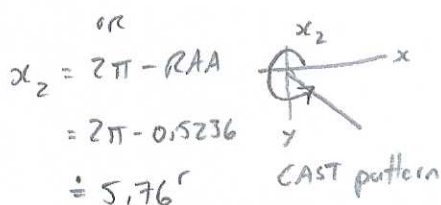 OR
x₂ = 2π - RAA
= 2π - 0,5236
≐ 5,76ʳ
x₂
x
y
CAST pattern